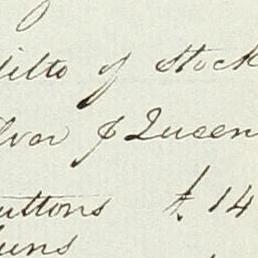 ditto of Stock
lvor & Queen
uttons £ 14
uns